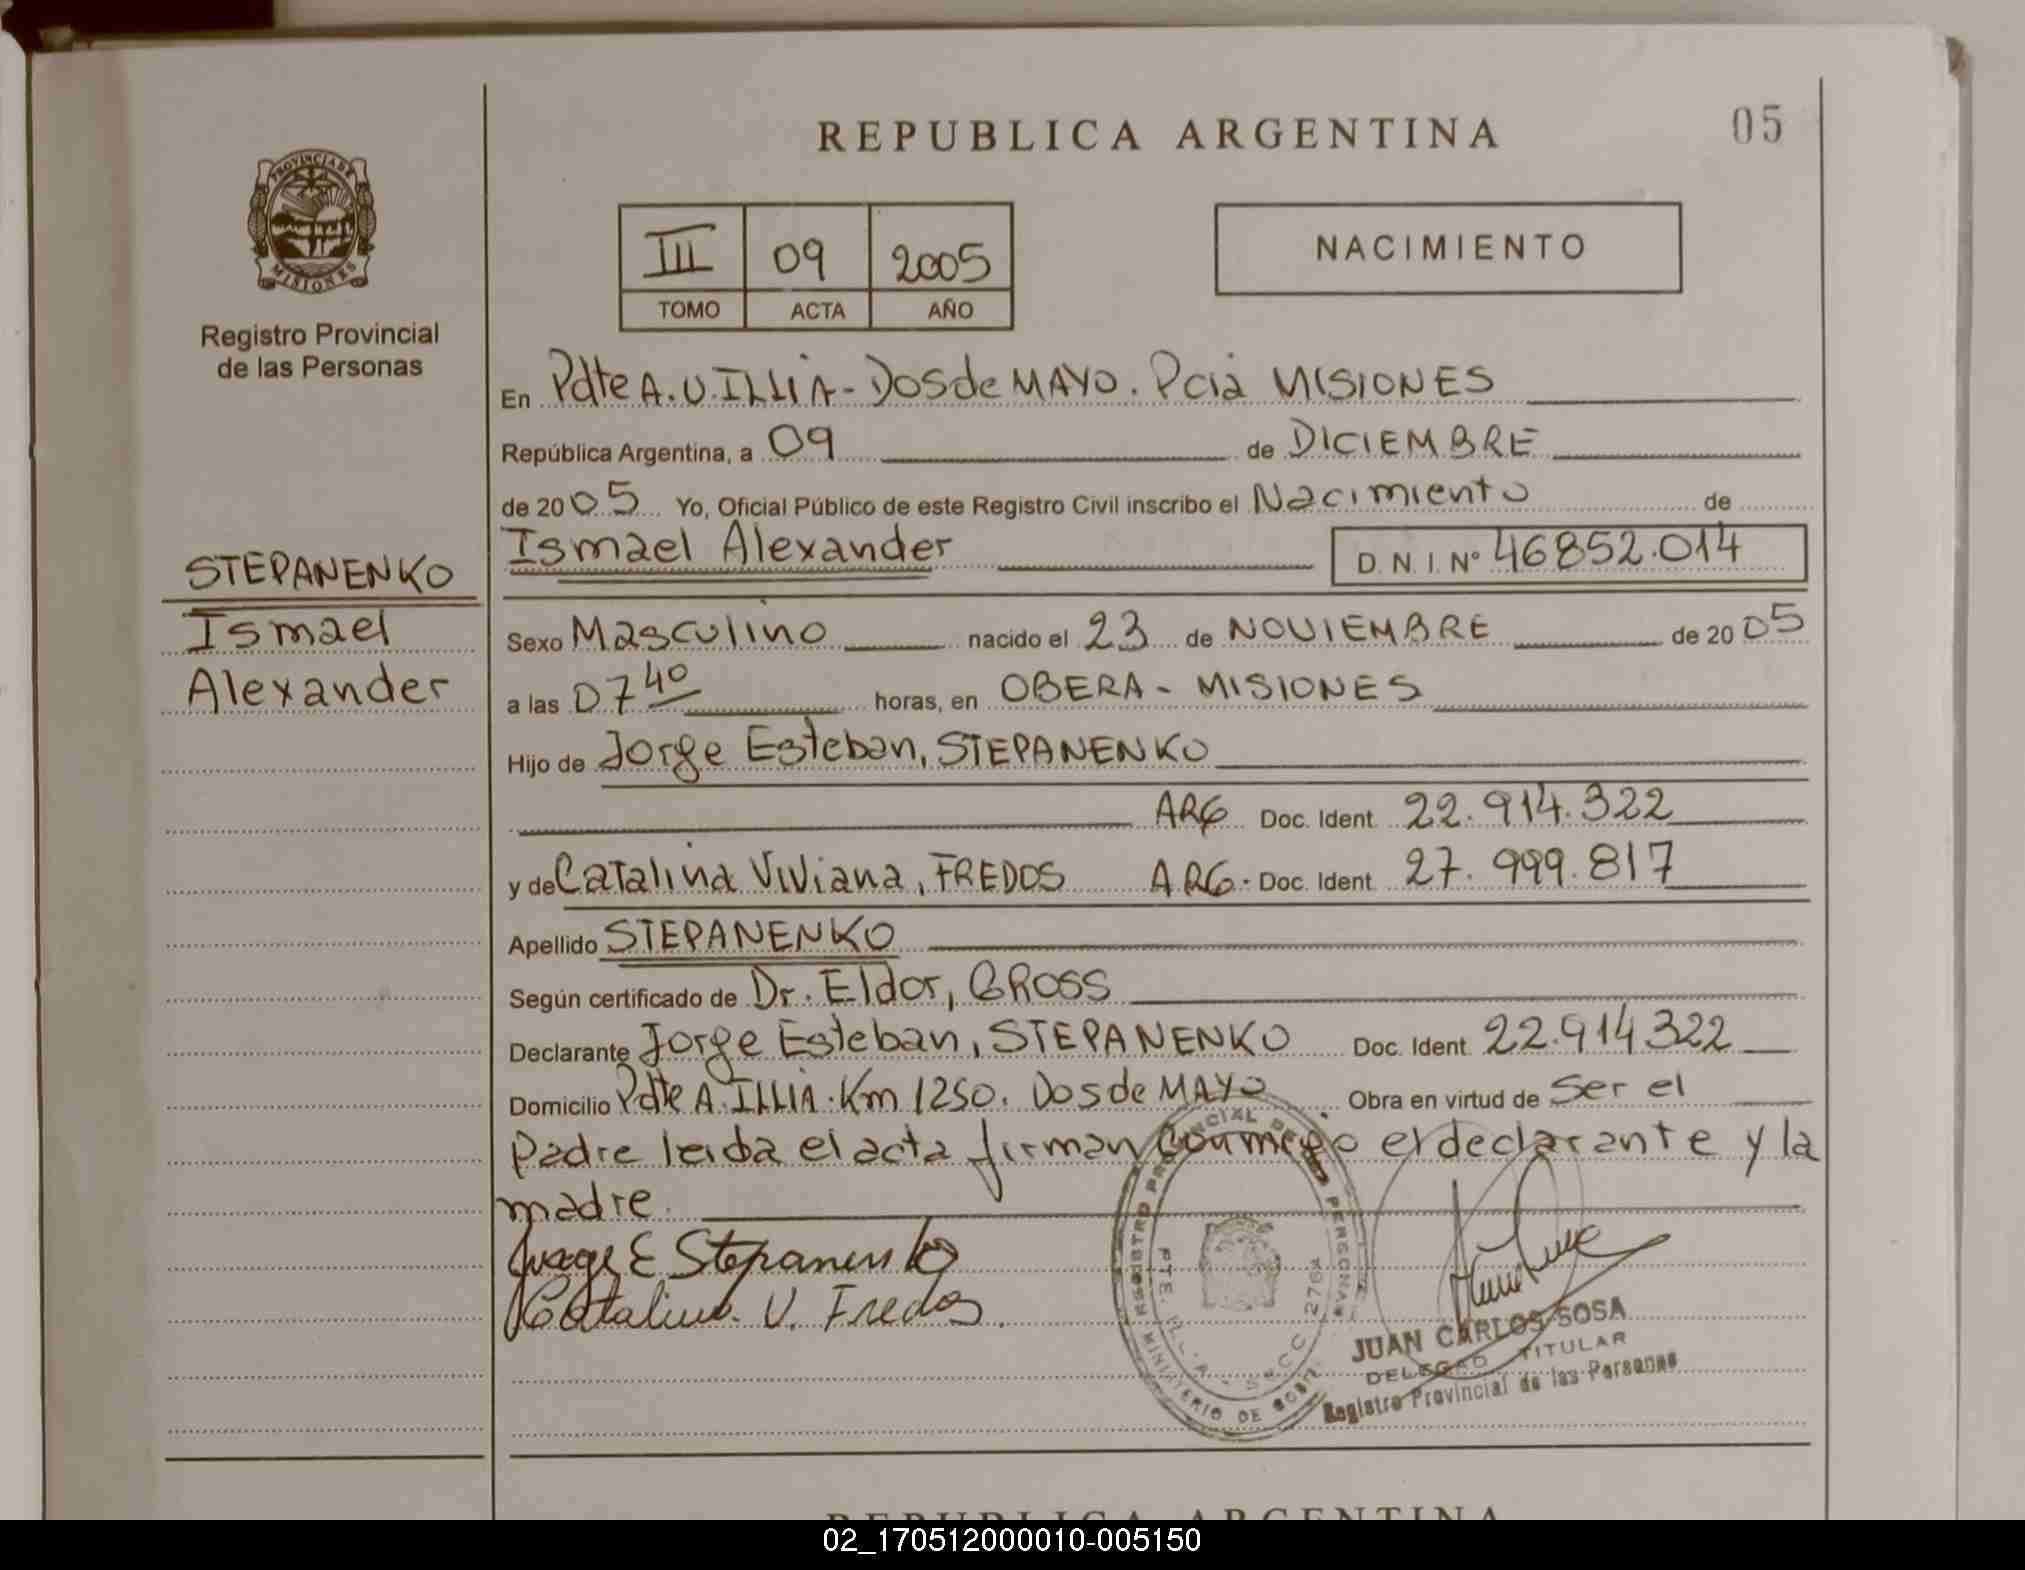 REPUBLICA ARGENTINA
05
PROVINCIA DE
MISIONES
Registro Provincial
de las Personas
III 09 2005
TOMO ACTA AÑO
NACIMIENTO
En Pdte A.U.ILLIA-DOSdeMAYO. Pcia MISIONES
República Argentina, a 09 de DICIEMBRE
de 2005 Yo, Oficial Público de este Registro Civil inscribo el Nacimiento de
Ismael Alexander D. N. I. Nº 46852.014
STEPANENKO
Ismael
Alexander
Sexo Masculino nacido el 23 de NOVIEMBRE de 2005
a las 07 40 horas, en OBERA - MISIONES
Hijo de Jorge Esteban, STEPANENKO
ARG Doc. Ident. 22.914.322
y de Catalina Viviana, FREDOS ARG. Doc. Ident. 27.999.817
Apellido STEPANENKO
Según certificado de Dr. Eldor, GROSS
Declarante Jorge Esteban, STEPANENKO Doc. Ident. 22.914322
Domicilio Pdte A. ILLIA. Km 1250. Dos de MAYO Obra en virtud de Ser el
Padre leida el acta firman conmigo el declarante y la
madre.
Jorge E Stepanenko
Catalina. V. Fredos.
REGISTRO PROVINCIAL DE PERSONAS
MINISTERIO DE GOBI.
JUAN CARLOS SOSA
DELEGADO TITULAR
Registro Provincial de las Personas
REPUBLICA ARGENTINA
02_170512000010-005150